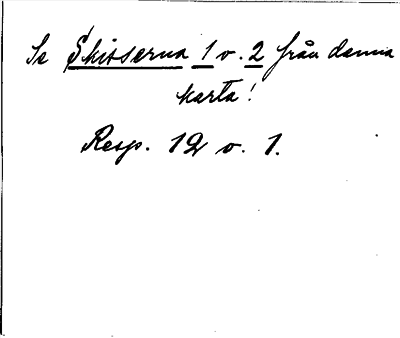 Se Skisserna 1 o. 2 från denna
karta!
Resp. 12 o. 1.